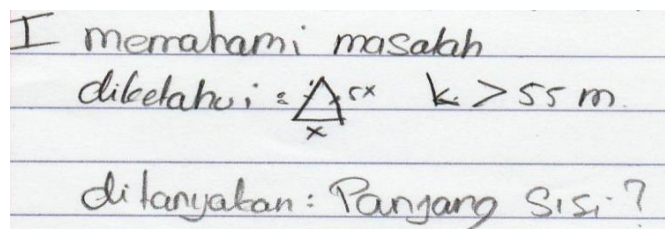 I memahami masalah
diketahui : 5x k > 55 m
x
ditanyakan : Panjang Sisi ?